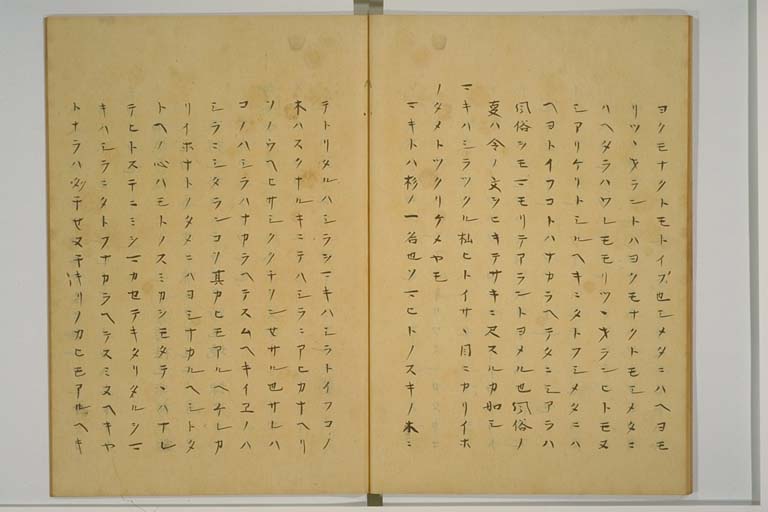 ヨクモナクトモトイフ也シメタニハヘヨモ
リツヽキラントハヨクモナクトモシメタニ
ハヘタラハワレモモリツヽキラシヒトモヌ
シアリケリトシルヘキニタトフシメタニハ
ヘヨトイフコトハナカラヘテタニシアラハ
風俗シモマモリテアラントヨメル也風俗ノ
夏ハ令ノ文シヒキテサキニ尺スルカ如シ
マキハシラツクル杣ヒトイサヽ目ニカリイホ
ノタメトツクリケメヤモ
マキトハ杉ノ一名也ソマヒトノスキノ木ニ
テトリタルハシラシマキハシラトイフコノ
木ハスクナルキニテハシラニアヒカナヘリ
ソノウヘヒサシククチソンセサル也サレハ
コノハシラハナカラヘテスムヘキイヱノハ
シラニシタランコソ真カヒモアルヘケレカ
リイホナトノタメニハヨシナカルヘシトタ
トヘノ心ハモトノスミカシモタテンハナレ
テヒトステニミシマカセテキタリタルシマ
キハシラニタトフナカラヘテスミヌヘキヤ
トナラハ必テセヌテキリノカヒモアルヘキ